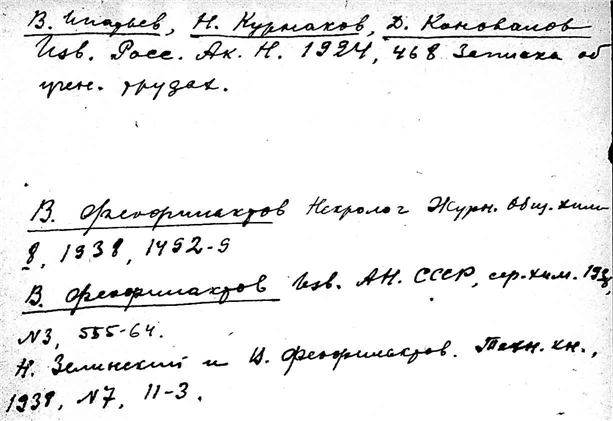 В. Ипатьев, Н. Курнаков, Д. Коновалов
Изв. Росс. Ак. Н. 1924, 468 Записка об
учен. трудах.
В. Феофилактов Некролог Журн. Общ. хим
8, 1938, 1492-9
В. Феофилактов Изв. АН. СССР, сер. хим. 1938,
N3, 555-64.
Н. Зелинский и В. Феофилактов. Техн. кн.,
1938, N7, 11-3.